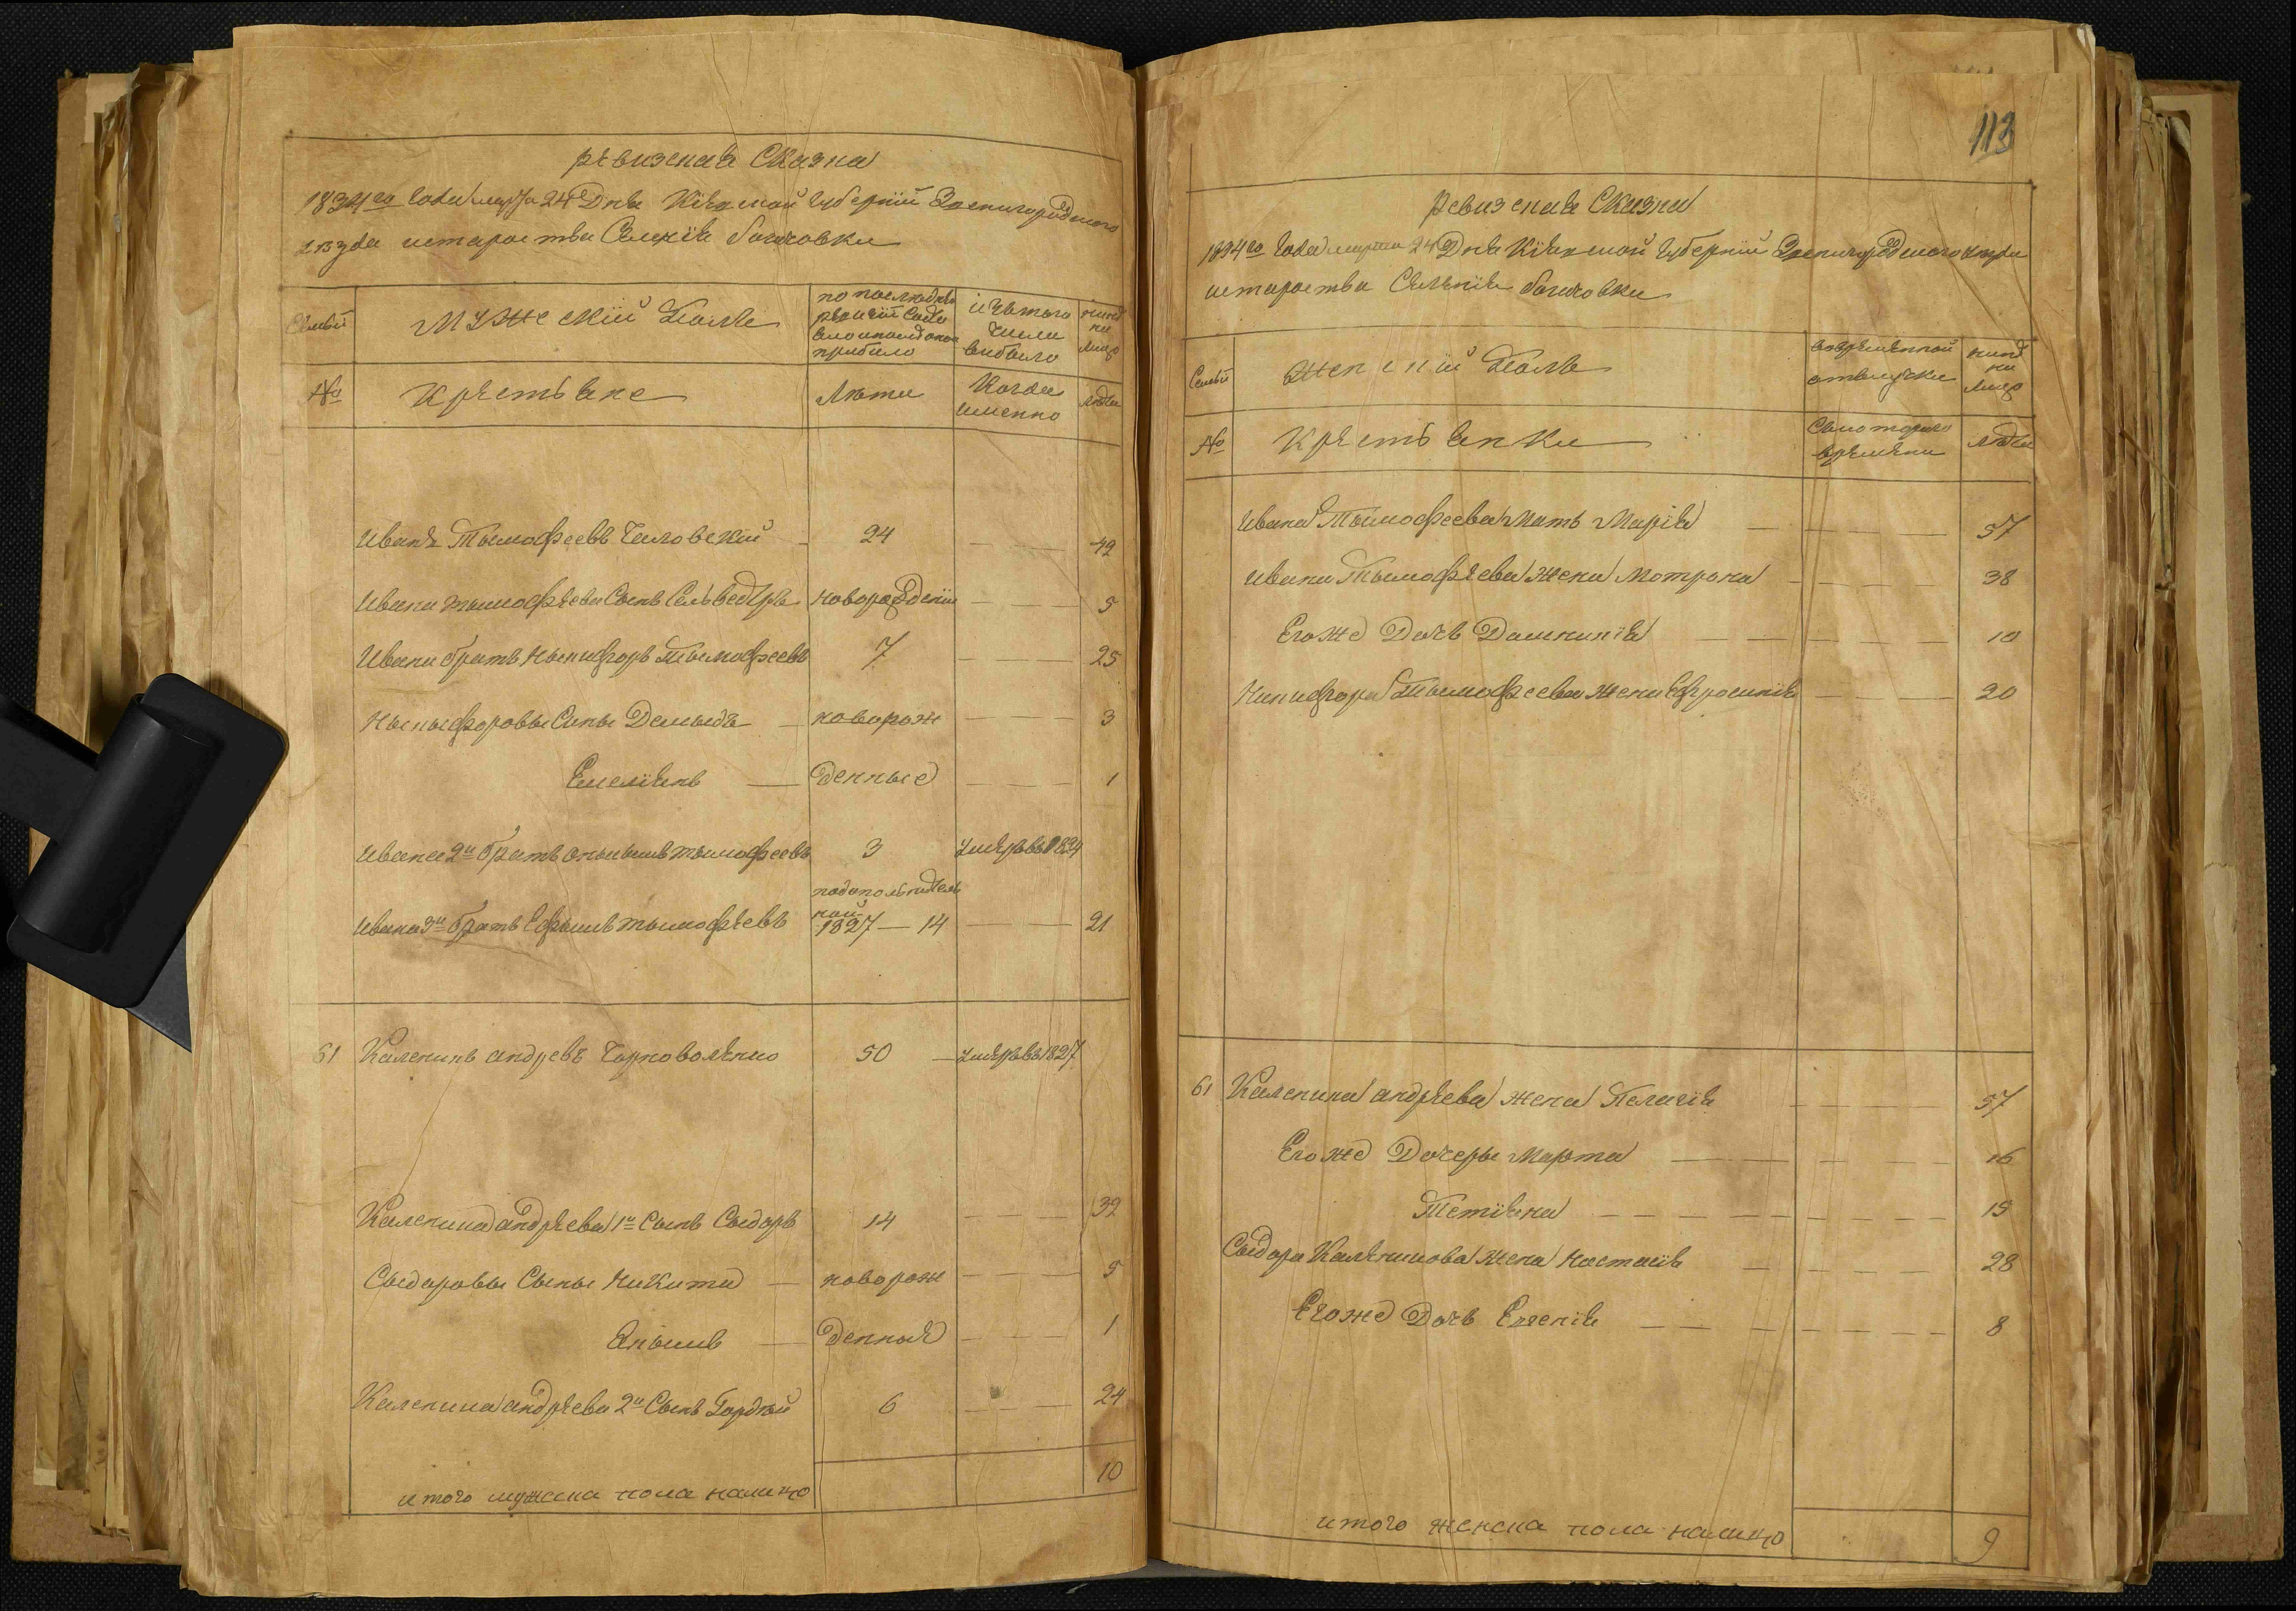 ревизская Сказка
1834го года марта 24 Дня Кіевской губерніи Звенигородского
уезда староства Селенія богачовки
Семьи
Мужескій Полъ
по последней
ревизіи состо
яло и после оной
прибыло
изъ того
числа
выбыло
нынѣ
на
лицо
№
Крестьяне
Лѣта
Когда
именно
Лѣта
Иванъ Тымофеевъ Чиловскій 24 42
Ивана тымофѣева Сынъ Сильведѣръ новорожденій 5
Ивана братъ Ныкифоръ Тымофеевъ 7 25
Ныкыфоровы Сыны Демыдъ новорож 3
Емеліянъ денные 1
Ивана 2й братъ Онысымъ тымофеевъ 3 умеръ въ 1824
подополнитель
ной
Ивана 3й братъ Ефымъ тымофѣевъ 1827 — 14 21
61 Каленикъ андреевъ Чорноволенко 50 умеръ въ 1827
Каленика андрѣева 1й Сынъ Сыдоръ 14 32
Сыдоровы Сыны Никита новорож 5
Онысымъ денныя 1
Каленика андрѣева 2й Сынъ Гордѣй 6 24
итого мужеска пола налицо 10
113
ревизская Сказка
1834го года марта 24 Дня Кіевской губерніи Звенигородского уезда
староства Селенія богачовки
Семьи
Женскій Полъ
во временной
отлучке
нынѣ
на
лицо
№
Крестьянки
Съ которого
времени
лѣта
Ивана Тымофеева мать Марія 57
Ивана Тымофѣева жена Мотрона 38
Егоже Дочь Домникія 10
Никифора Тымофеева жена Ефросинія 20
61 Каленика андрѣева жена Пелагія 57
Егоже Дочеры Марта 16
Тетіяна 15
Сыдора Каленикова жена Настасія 28
Егоже Дочь Евгенія 8
итого женска пола налицо 9